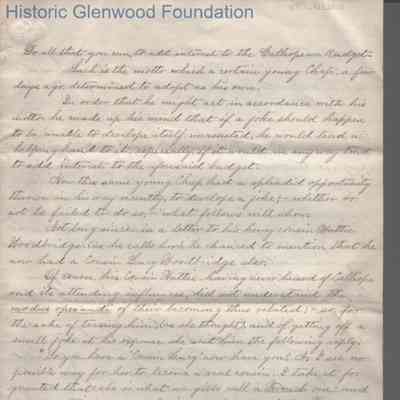 Historic Glenwood Foundation
Do all that you can, to add interest to the Calliopean Budget –
Such is the motto which a certain young Chap, a few
days ago, determined to adopt as his own.
In order that he might act in accordance with his
motto he made up his mind that if a joke should happen
to be unable to develope itself, unassisted, he would lend a
helping hand to it especially if it would in any way tend
to add interest to the aforesaid budget.
Now this same young Chap had a splendid opportunity
thrown in his way recently, to develope a joke, – whether or
not he failed to do so, – what follows will show.
Not long since, in a letter to his Cousin Hattie
Woodbridge (as he calls her) he chanced to mention that he
now had a Cousin Lucy Woodbridge also.
Of course, his Cousin Hattie, having never heard of Calliope
and its attending influences, did not understand the
modus operandi of their becoming thus related; – so, for
the sake of teasing him (as she thought) and of getting off a
small joke at his expense she sent him the following reply:
"So you have a 'Cousin Lucy' now have you? As I see no
possible way for her to become a real cousin, I take it for
granted that she is what we girls call a French one and